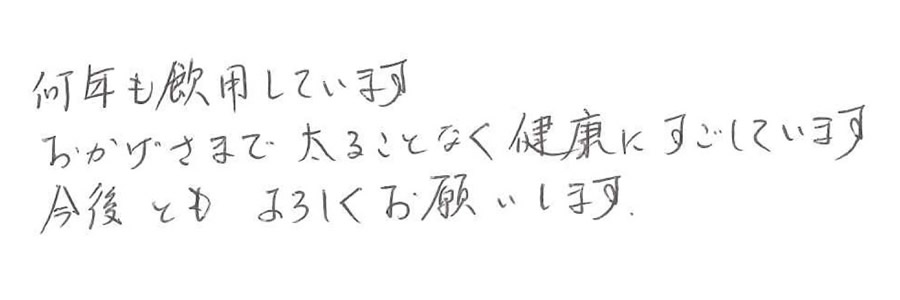 何年も飲用しています
おかげさまで 太ることなく健康に すごしています
今後とも よろしくお願いします.